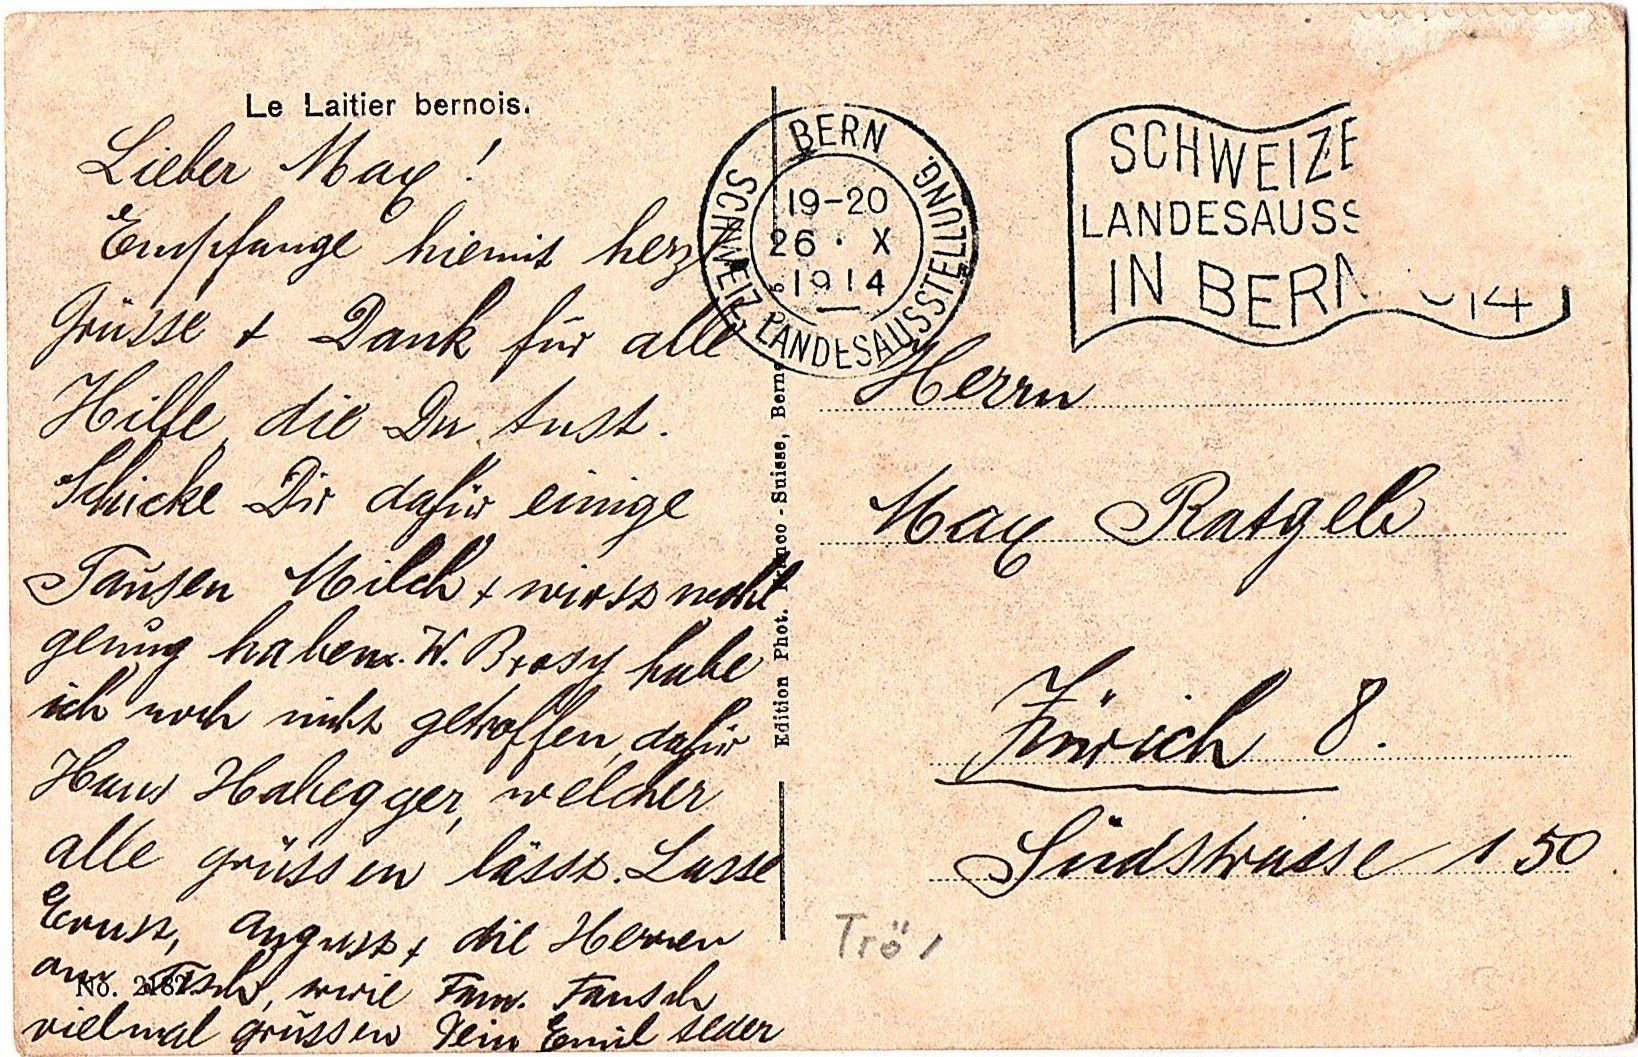 Le Laitier bernois.
Lieber Max!
Empfange hiemit herzl.
Grüsse + Dank für alle
Hilfe, die Du tust.
Schicke Dir dafür einige
Tausen Milch + wirst wohl
genug haben. W. Brosy habe
ich noch nicht getroffen, dafür
Hans Habegger, welcher
alle grüssen lässt. Lasse
Ernst, August + die Herren
am Tisch, wie Fam. Fausch
vielmal grüssen Dein Emil
No. 2182
Edition Phot. -Suisse, Berne
BERN
SCHWEIZ. LANDESAUSSTELLUNG.
19-20
26 · X
1914
SCHWEIZE
LANDESAUSS
IN BERN 1914
Herrn
Max Ratgeb
Zürich 8.
Südstrasse 150
Trö